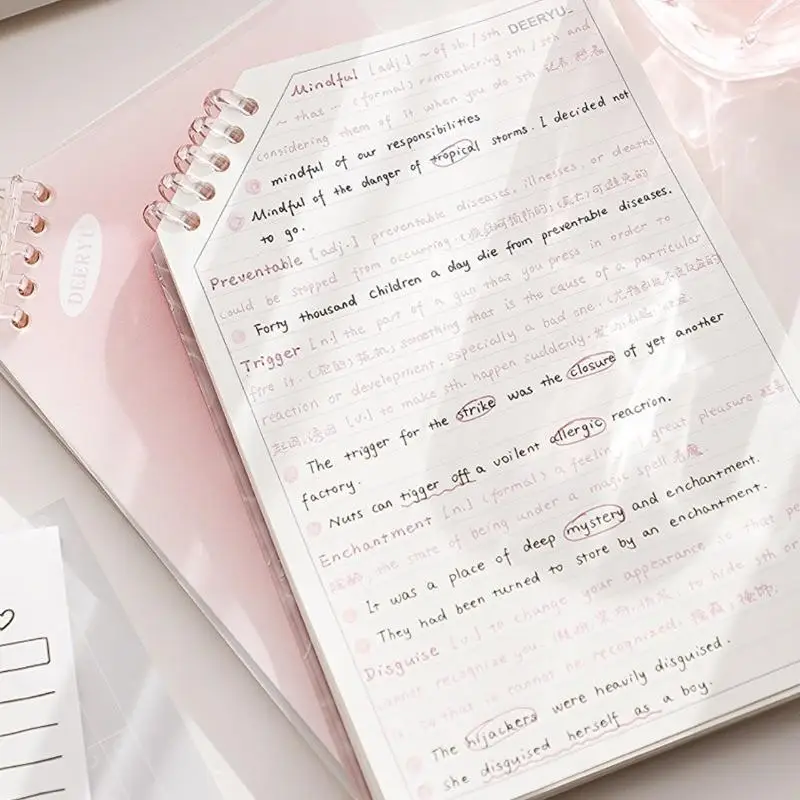 DEERYU_
Mindful [adj.] ~of sb / sth
~ that … (formal) remembering sth / sb and
considering them of it when you do sth 记着 想着
mindful of our responsibilities
Mindful of the danger of tropical storms. I decided not
to go.
Preventable [adj.] preventable diseases, illnesses, or deaths
could be stopped from occurring. 可避免的
Forty thousand children a day die from preventable diseases.
Trigger [n.] the part of a gun that you press in order to
fire it. something that is the cause of a particular
reaction or development, especially a bad one.
[v.] to make sth. happen suddenly.
The trigger for the strike was the closure of yet another
factory.
Nuts can tigger off a voilent allergic reaction.
Enchantment [n.] (formal) a feeling of great pleasure
the state of being under a magic spell
It was a place of deep mystery and enchantment.
They had been turned to store by an enchantment.
Disguise [v.] to change your appearance so that pe
cannot recognize you. to hide sth or
so that it cannot be recognized.
The hijackers were heavily disguised.
she disguised herself as a boy.
DEERYU